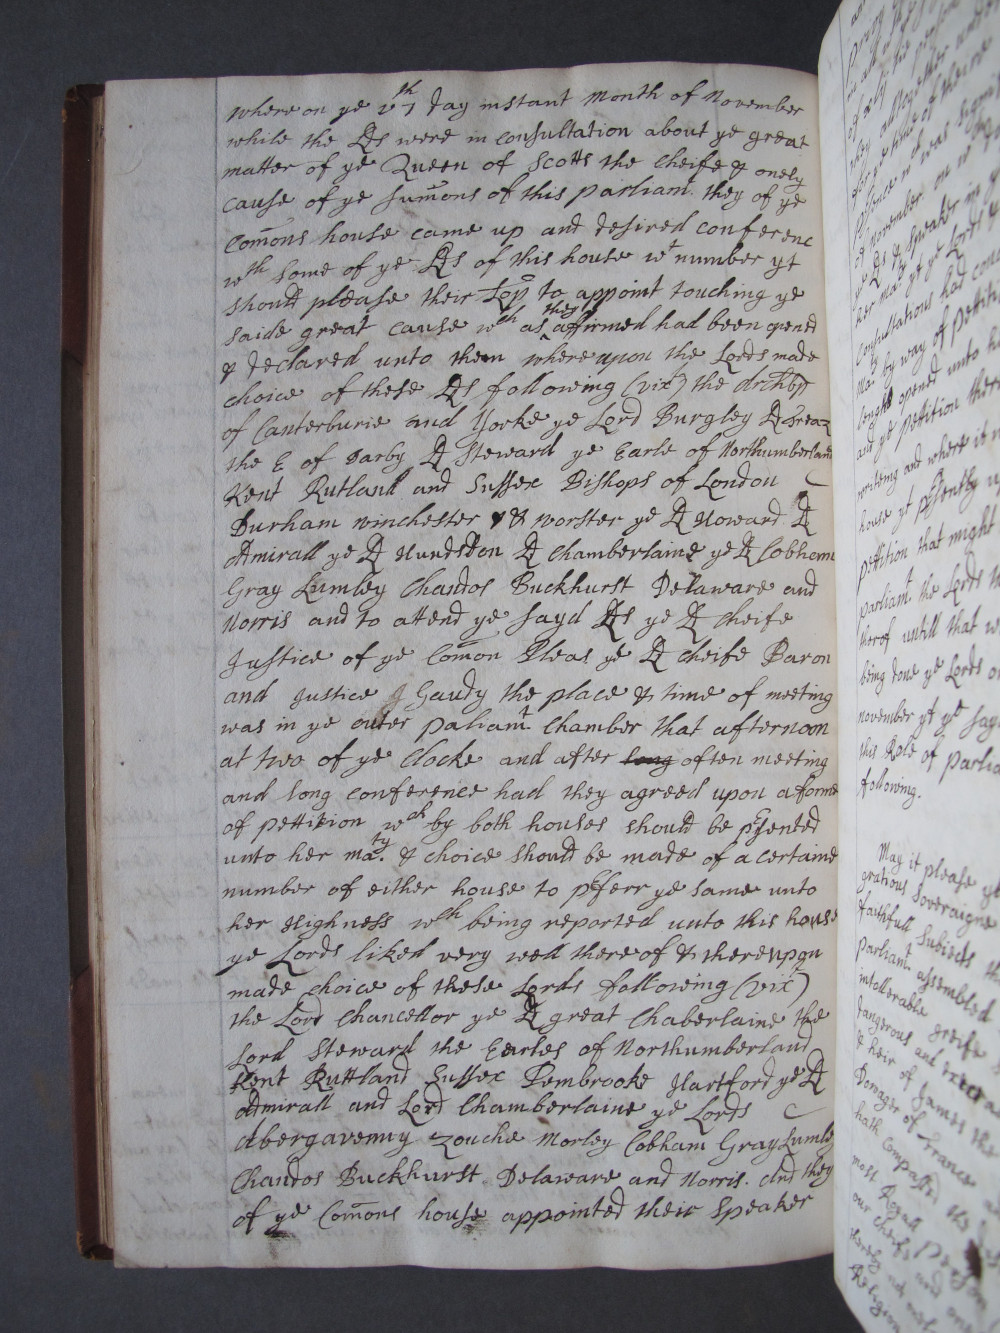 where on ye 7th day instant Month of November
while the Lds were in consultation about ye great
matter of ye Queen of Scotts the cheife & onely
cause of ye sum̄ons of this parliamt. they of ye
Com̄ons house came up and desired conferenc
wth some of ye Lds of this house wt number yt
should please their Lopps to appoint touching ye
saide great cause wch as they affirmed had been opened
& declared unto them where upon the Lords made
choice of these Lds following (vizt) the Archbps
of Canterburie and Yorke ye Lord Burgley Ld Trear
the E of Darby Ld Steward ye Earle of Northumberland
Kent Rutland and Sussex Bishops of London
Durham winchester & worster ye Ld Howard Ld
Admirall ye Ld Hundsdon Ld Chamberlaine ye Ld Cobhem
Gray Lumley Chandos Buckhurst Delaware and
Norris and to attend ye sayd Lds ye Ld cheife
Justice of ye Com̄on Pleas ye Ld cheife Baron
and Justice Gaudy the place & time of meeting
was in ye outer paliamt. Chamber that afternoon
at two of ye Clocke and after long often meeting
and long conference had they agreed upon a forme
of pettition wch by both houses should be psented
unto her maty. & choice should be made of a certaine
number of either house to pferr ye same unto
her Highness wch being reported unto this house
ye Lords liked very well thereof & thereupon
made choice of these Lords following (vizt)
the Lord Chancellor ye Ld great Chaberlaine the
Lord Steward the Earles of Northumberland
Kent Ruttland Sussex Pembrooke Hartford ye Ld
Admirall and Lord Chamberlaine ye Lords
Abergavenny Zouche Morley Cobham Gray Lumly
Chandos Buckhurst Delaware and Norris. And they
of ye Com̄ons house appointed their Speaker
of November. on
ye Lds & Speaker
her Maty ye Lords
Consultations had
Maty by way of petti
length opened unto
and ye Pettition
writeing and where it
house yt psently
pettition that might
parliamt. the Lords
therof untill that
being done ye Lords
November yt ye say
this Role of parlia
following.
May it please
gratious Soveraigne
faithfull Subiects
parliamt. assembled
intollerable greife
dangerous and
& heir of James the
Dowager of France
hath Compassed the
most Royall Person
our cheife and
thereby not
Religion